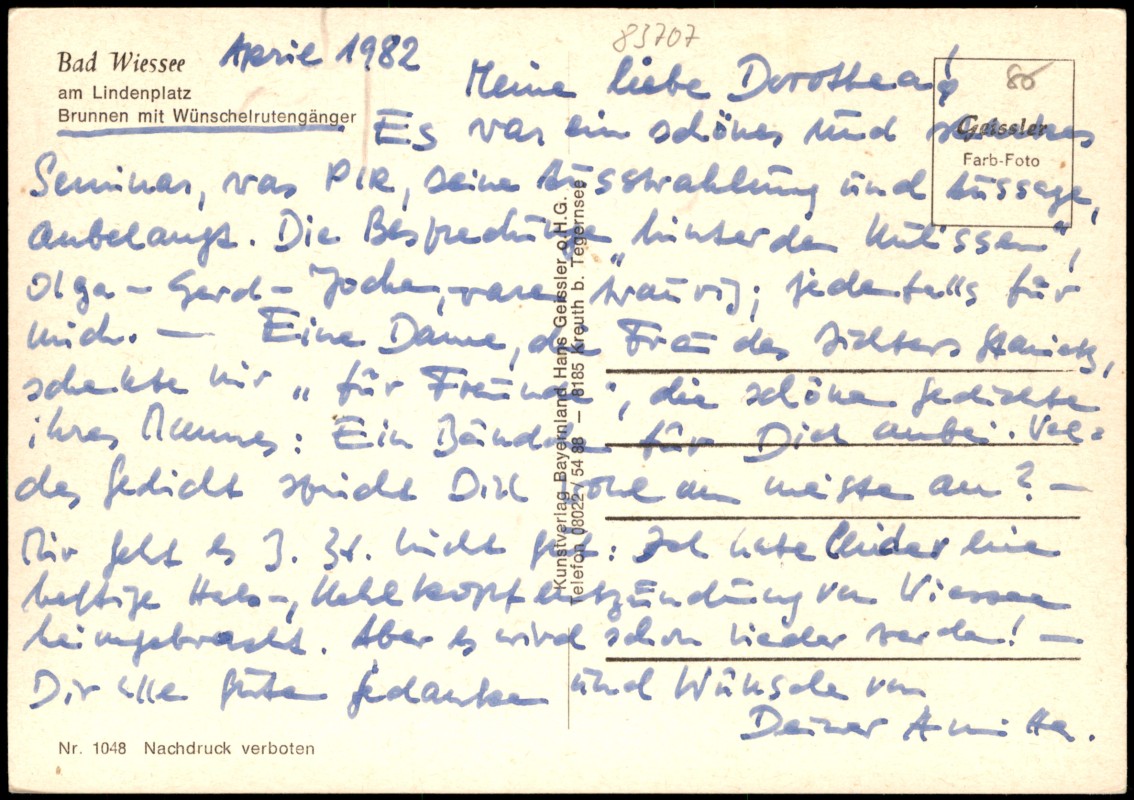 83707
Bad Wiessee April 1982
am Lindenplatz
Brunnen mit Wünschelrutengänger
86
Geissler
Farb-Foto
Meine liebe Dorothea!
Es war ein schönes und
Seminar, was PIR, seine Ausstrahlung und Aussage,
anbelangt. Die Besprechungen "hinter den Kulissen",
Olga - Gerd - Jochen, waren traurig; jedenfalls für
mich. — Eine Dame, die Frau des Dichters
schenkte mir "für Freunde", die schönen Gedichte
ihres Mannes: Ein Bändchen für Dich anbei. Wel=
ches Gedicht spricht Dich wohl am meisten an? —
Mir geht es z. Zt. nicht gut: Ich habe leider eine
heftige Hals-, Kehlkopfentzündung von Wiessee
heimgebracht. Aber es wird schon wieder werden! —
Dir alle guten Gedanken und Wünsche von
Deiner
Kunstverlag Bayernland Hans Geissler o.H.G.
Telefon 08022 / 54 88 — 8185 Kreuth b. Tegernsee
Nr. 1048 Nachdruck verboten